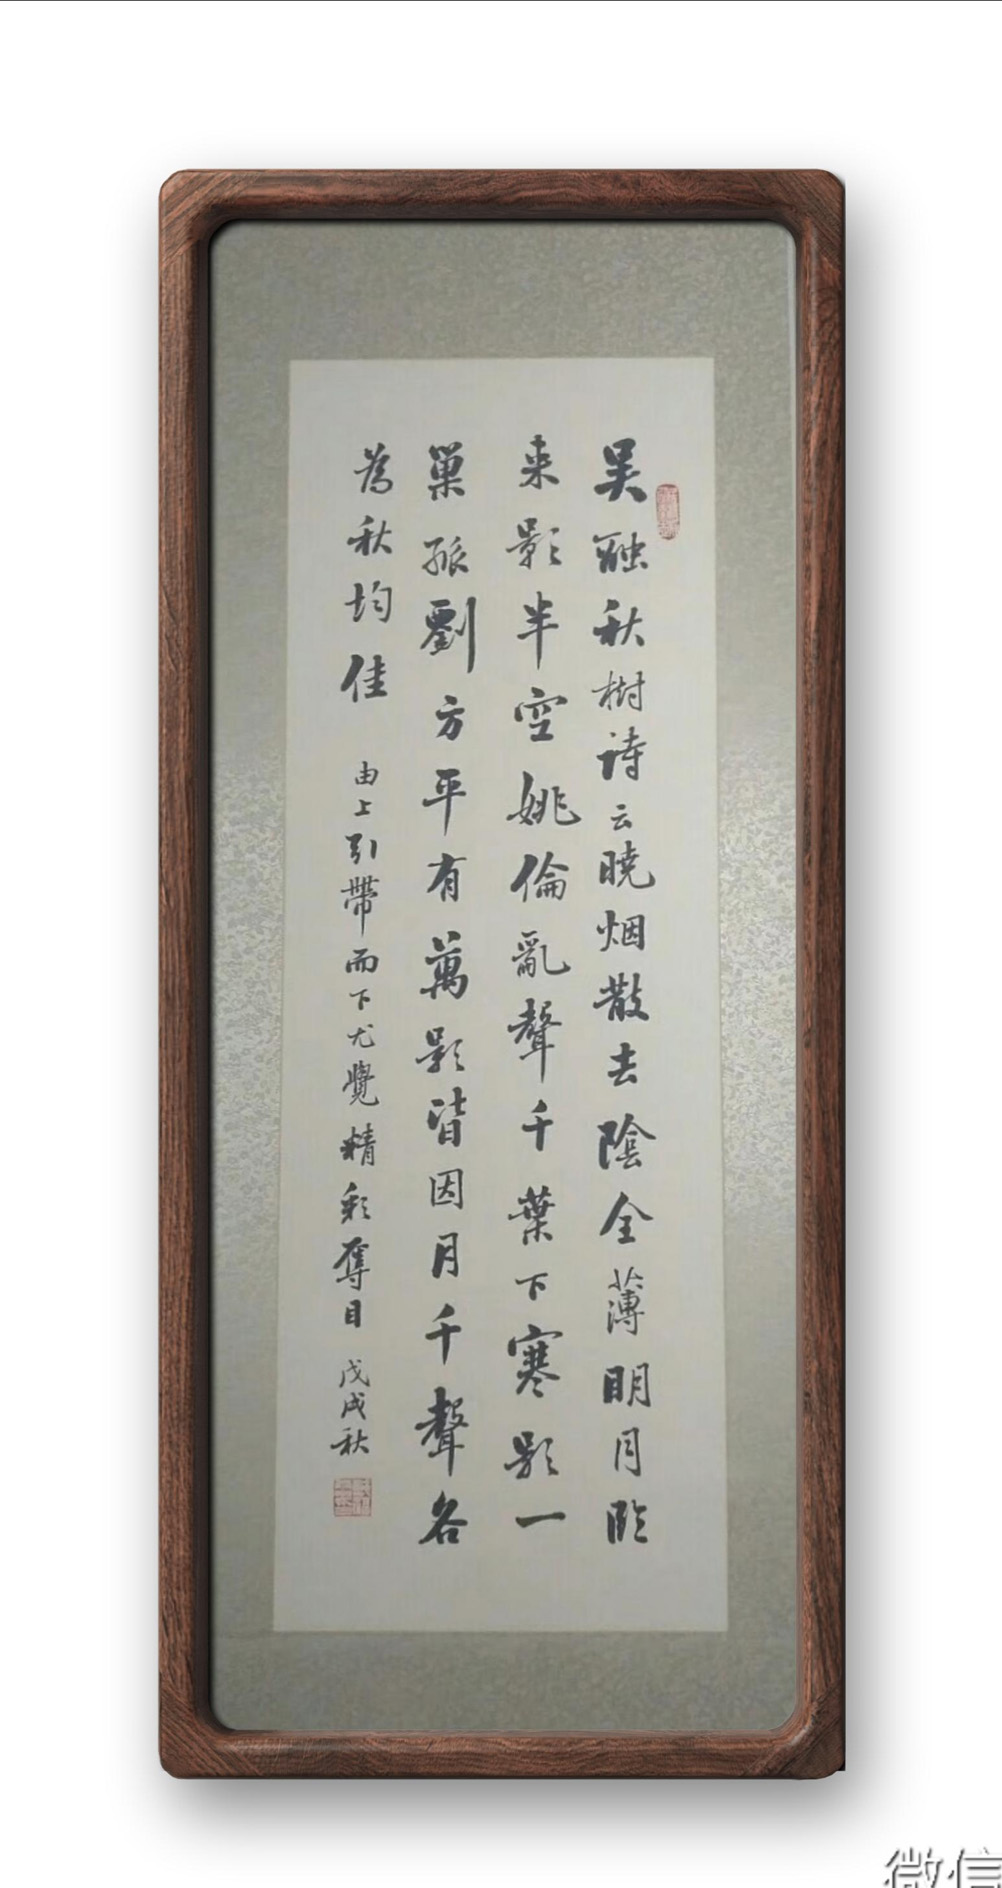 吴融秋樹诗云曉烟散去陰全薄明月臨
来影半空姚倫亂聲千葉下寒影一
巢孤劉方平有萬影皆因月千聲各
為秋均佳
由上引帶而下尤覺精彩奪目
戊戌秋
微信